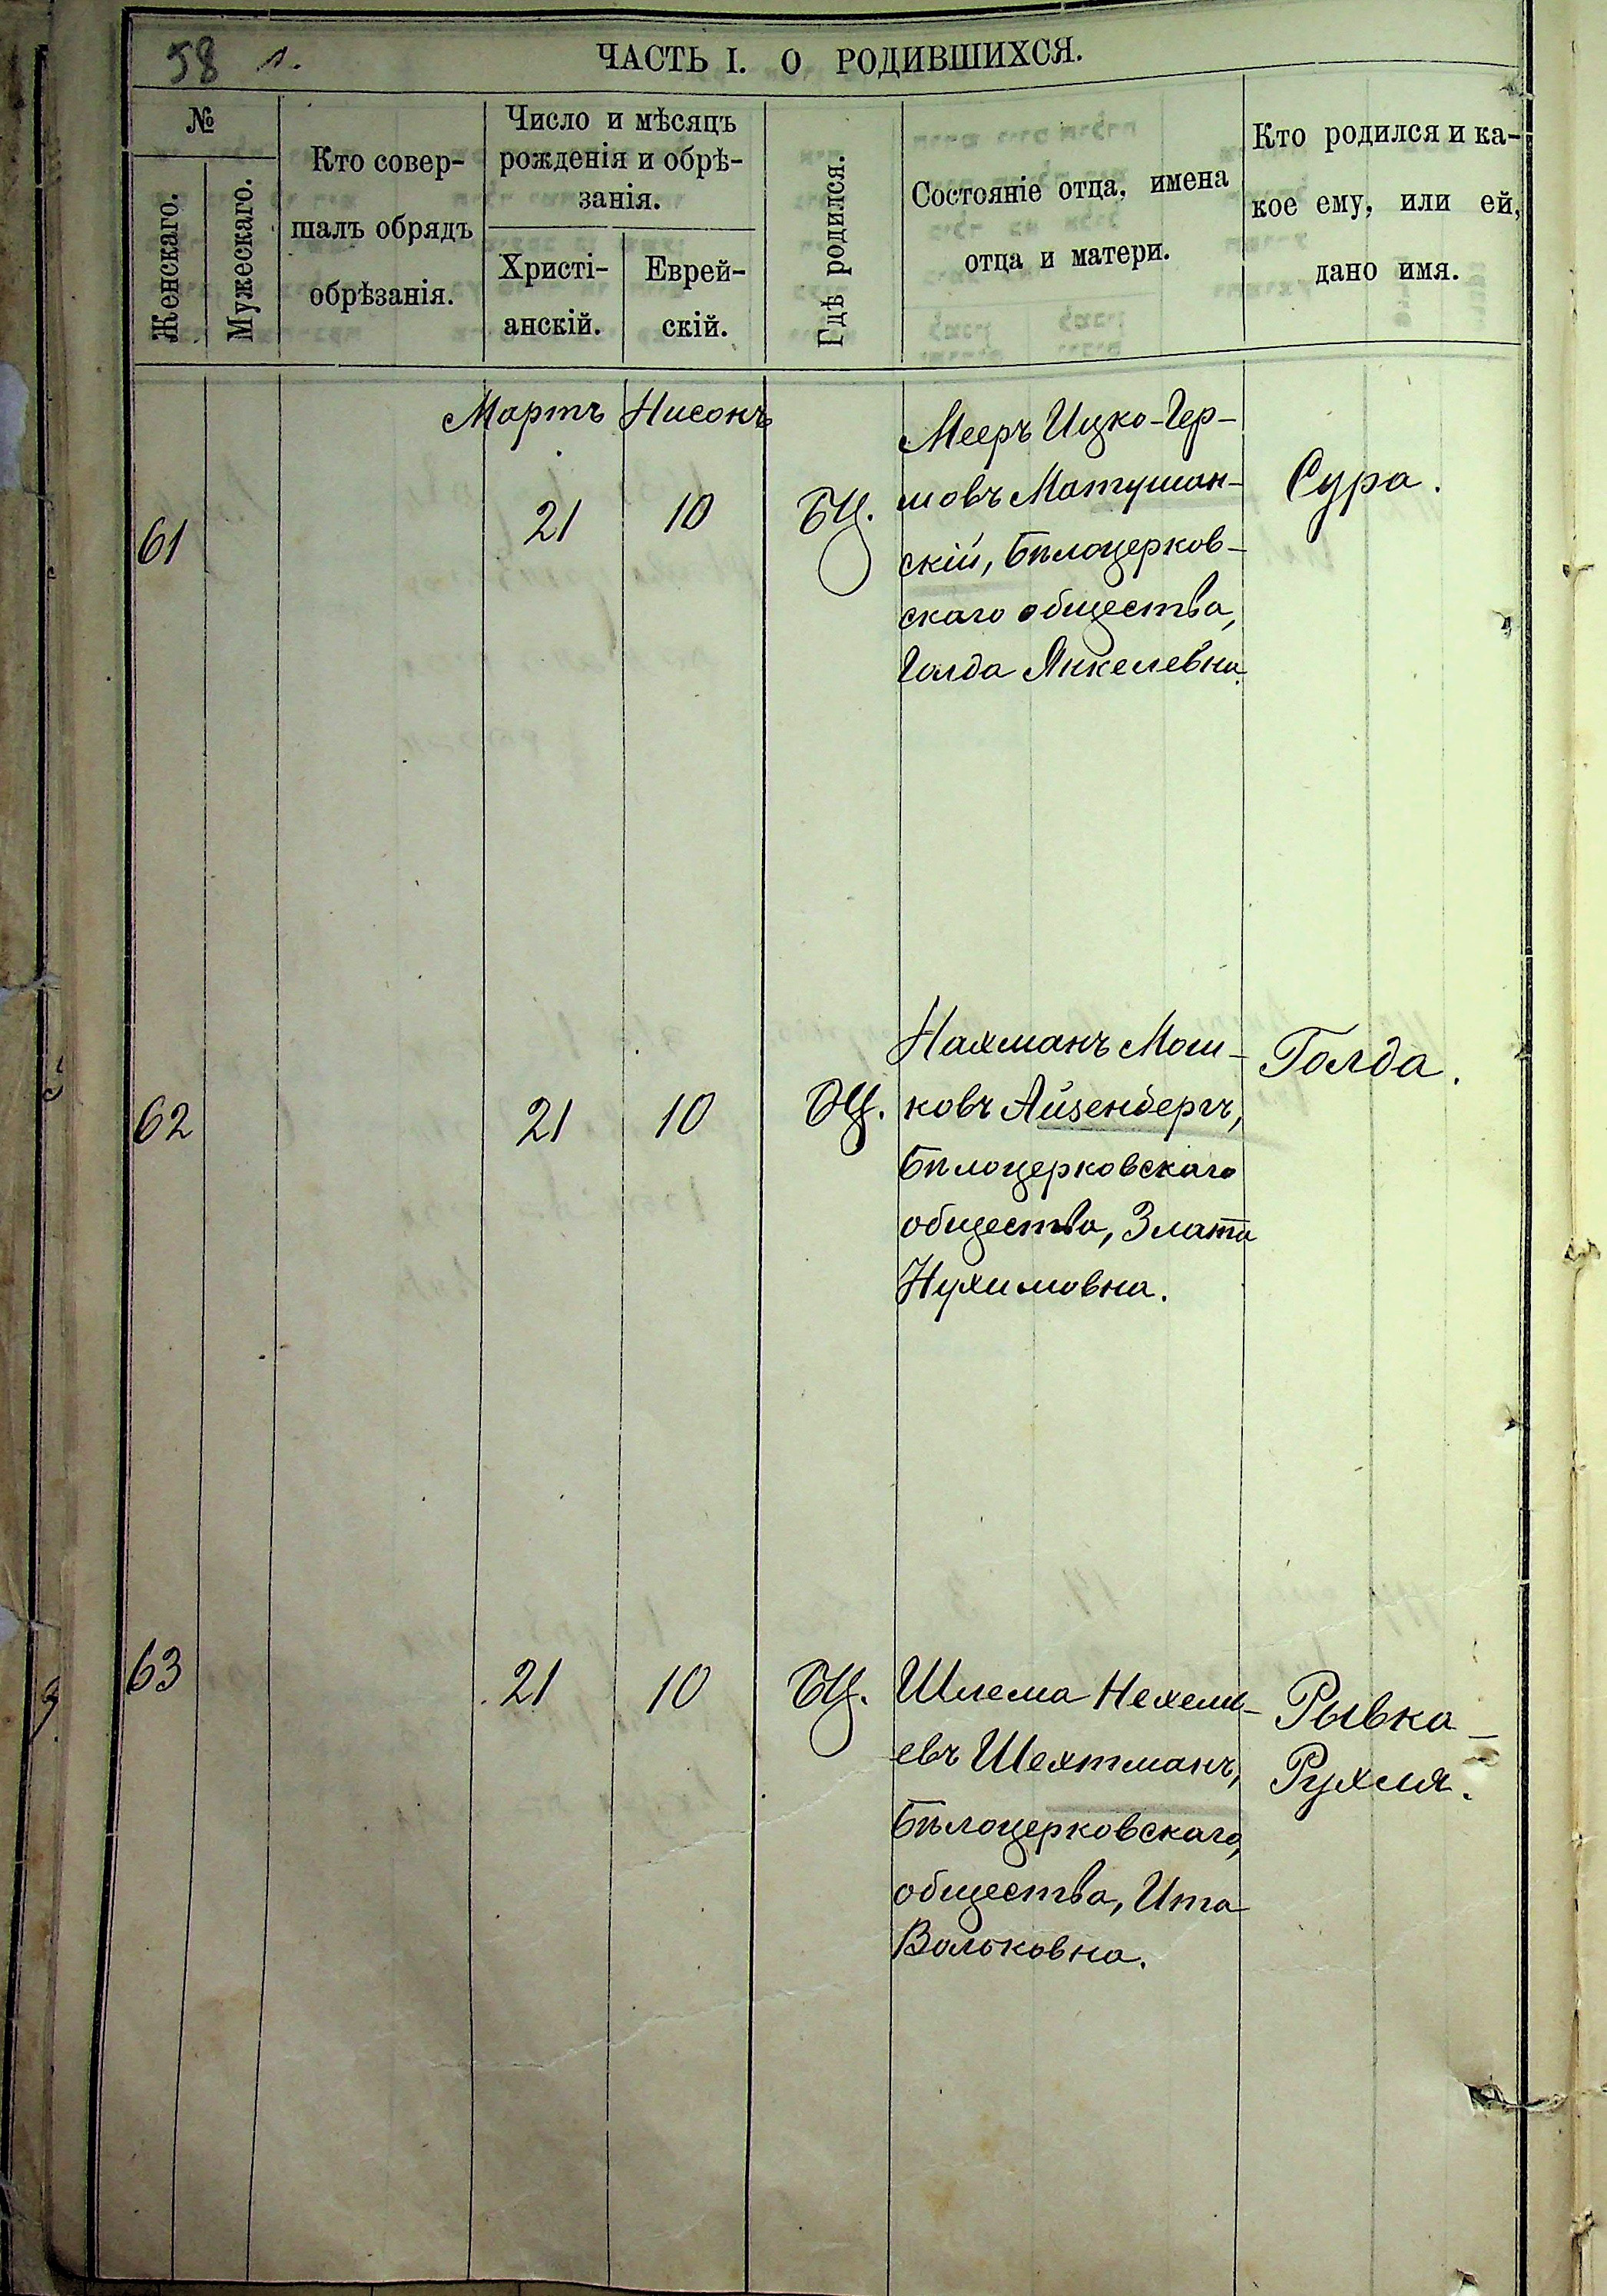 58 л.
ЧАСТЬ I. О РОДИВШИХСЯ.
№
Женскаго.
Мужескаго.
Кто совер-
шалъ обрядъ
обрѣзанія.
Число и мѣсяцъ
рожденія и обрѣ-
занія.
Христі-
анскій.
Еврей-
скій.
Гдѣ родился.
Состояніе отца, имена
отца и матери.
Кто родился и ка-
кое ему, или ей,
дано имя.
Мартъ Нисонъ
61
21
10
БЦ.
Мееръ Ицко-Гер-
шовъ Матушан-
скій, Бѣлоцерков-
скаго общества,
Голда Янкелевна.
Сура.
62
21
10
БЦ.
Нахманъ Мош-
ковъ Айзенбергъ,
Бѣлоцерковскаго
общества, Злата
Нухимовна.
Голда.
63
21
10
БЦ.
Шлема Нехемь-
евъ Шехтманъ,
Бѣлоцерковскаго
общества, Ита
Вольковна.
Рывка-
Рухля.